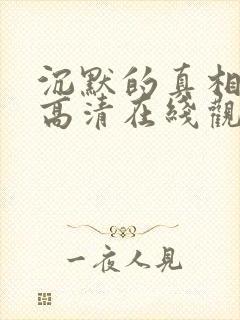 沉默的真相
高清在綫觀
一夜人見